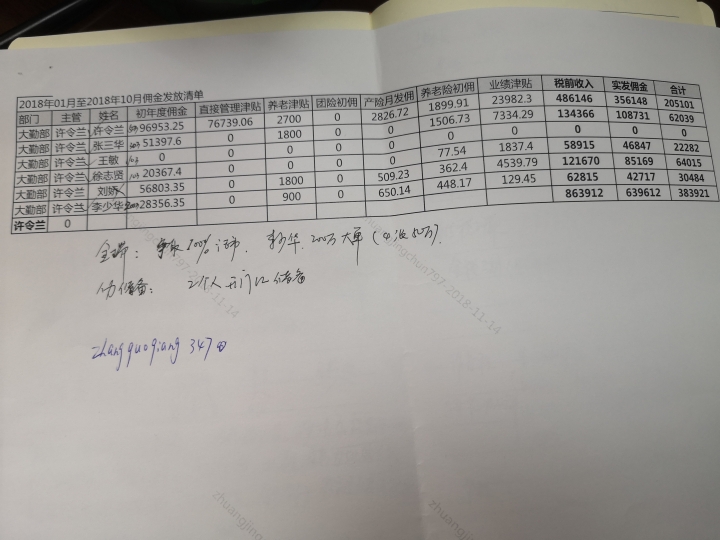 2018年01月至2018年10月佣金发放清单
部门 主管 姓名 初年度佣金 直接管理津贴 养老津贴 团险初佣 产险月发佣 养老险初佣 业绩津贴 税前收入 实发佣金 合计
大勤部 许令兰 许令兰 96953.25 76739.06 2700 0 2826.72 1899.91 23982.3 486146 356148 205101
大勤部 许令兰 张三华 51397.6 0 1800 0 0 1506.73 7334.29 134366 108731 62039
大勤部 许令兰 王敏 0 0 0 0 0 0 0 0 0 0
大勤部 许令兰 徐志贤 20367.4 0 0 0 0 77.54 1837.4 58915 46847 22282
大勤部 许令兰 刘娇 56803.35 0 1800 0 509.23 362.4 4539.79 121670 85169 64015
大勤部 许令兰 李少华 28356.35 0 900 0 650.14 448.17 129.45 62815 42717 30484
许令兰 0 863912 639612 383921
100% 200万大单
2个人 开门红储备
zhangguoqiang 347
zhuangjingchun797-2018-11-14